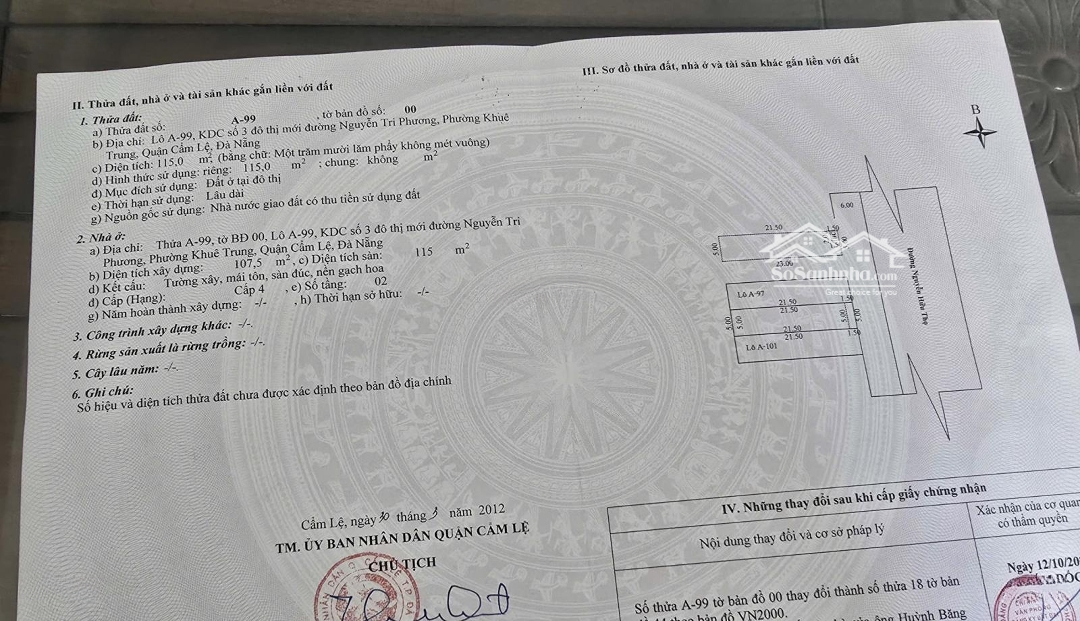 II. Thửa đất, nhà ở và tài sản khác gắn liền với đất
1. Thửa đất:
a) Thửa đất số: A-99 , tờ bản đồ số: 00
b) Địa chỉ: Lô A-99, KDC số 3 đô thị mới đường Nguyễn Tri Phương, Phường Khuê
Trung, Quận Cẩm Lệ, Đà Nẵng
c) Diện tích: 115,0 m², (bằng chữ: Một trăm mười lăm phẩy không mét vuông)
d) Hình thức sử dụng: riêng: 115,0 m² ; chung: không m²
đ) Mục đích sử dụng: Đất ở tại đô thị
e) Thời hạn sử dụng: Lâu dài
g) Nguồn gốc sử dụng: Nhà nước giao đất có thu tiền sử dụng đất
2. Nhà ở:
a) Địa chỉ: Thửa A-99, tờ BĐ 00, Lô A-99, KDC số 3 đô thị mới đường Nguyễn Tri
Phương, Phường Khuê Trung, Quận Cẩm Lệ, Đà Nẵng
b) Diện tích xây dựng: 107,5 m², c) Diện tích sàn: 115 m²
d) Kết cấu: Tường xây, mái tôn, sàn đúc, nền gạch hoa
đ) Cấp (Hạng): Cấp 4 , e) Số tầng: 02
g) Năm hoàn thành xây dựng: -/- , h) Thời hạn sở hữu: -/-
3. Công trình xây dựng khác: -/-.
4. Rừng sản xuất là rừng trồng: -/-.
5. Cây lâu năm: -/-
6. Ghi chú:
Số hiệu và diện tích thửa đất chưa được xác định theo bản đồ địa chính
Cẩm Lệ, ngày 30 tháng 3 năm 2012
TM. ỦY BAN NHÂN DÂN QUẬN CẨM LỆ
CHỦ TỊCH
III. Sơ đồ thửa đất, nhà ở và tài sản khác gắn liền với đất
B
6.00
21.50
1.50
5.00
23.00
Đường Nguyễn Hữu Thọ
SoSanhnha.com
Great choice for you
Lô A-97
21.50
1.50
21.50
5.00
5.00
5.00
5.00
21.50
21.50
1.50
Lô A-101
IV. Những thay đổi sau khi cấp giấy chứng nhận
Nội dung thay đổi và cơ sở pháp lý
Xác nhận của cơ quan
có thẩm quyền
Ngày 12/10/20
Số thửa A-99 tờ bản đồ 00 thay đổi thành số thửa 18 tờ bản
theo bản đồ VN2000.
của ông Huỳnh Băng